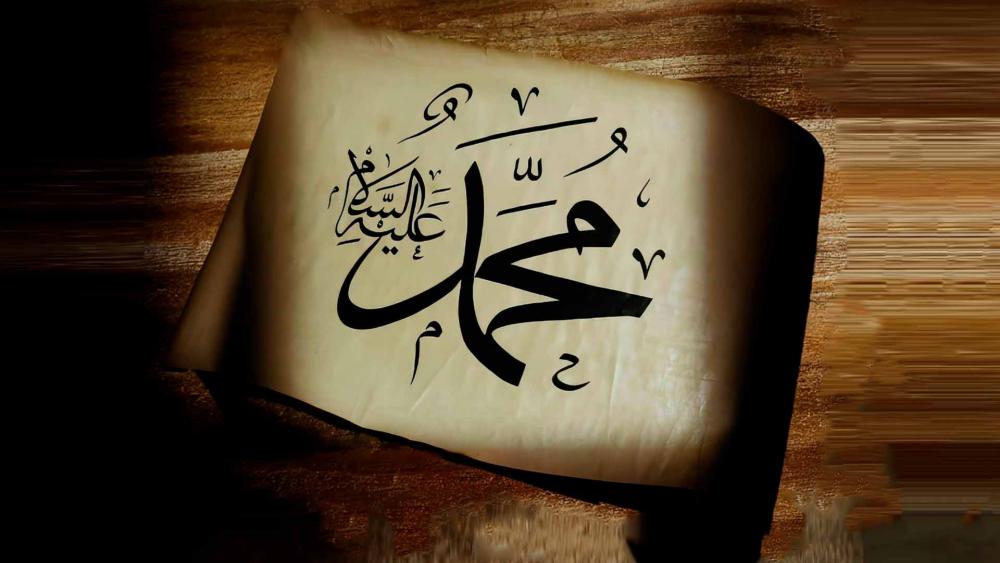 مُحَمَّد
عليه السلام